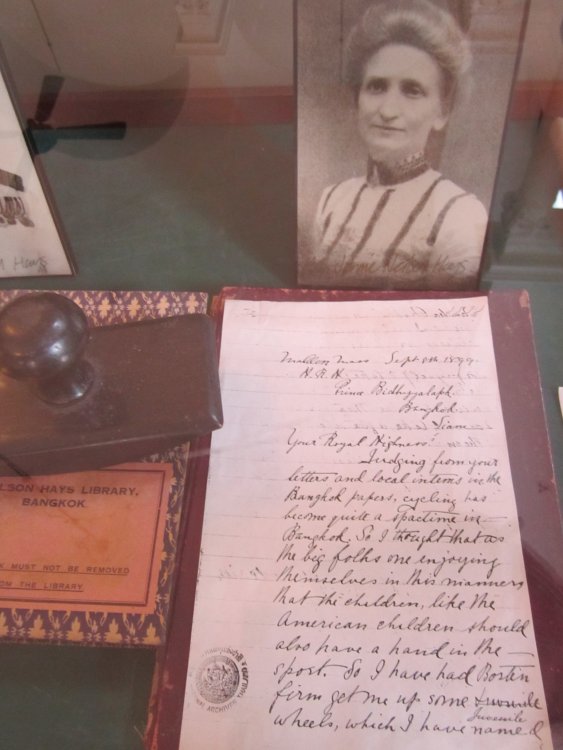 Jennie Neilson Hays
Hays
Maldon Mass Sept 8th 1899.
H. R. H.
Prince Bidhyalaph
Bangkok
Siam
Your Royal Highness:
Judging from your
letters and local items in the
Bangkok papers, cycling has
become quite a spactime in
Bangkok, So I thought that as
the big folks are enjoying
themselves in this manner,
that the children, like the
American children should
also have a hand in the
sport. So I have had Bostin
firm get me up some
Juvenile
wheels, which I have named
LSON HAYS LIBRARY,
BANGKOK
K MUST NOT BE REMOVED
OM THE LIBRARY
NATIONAL ARCHIVES THAILAND